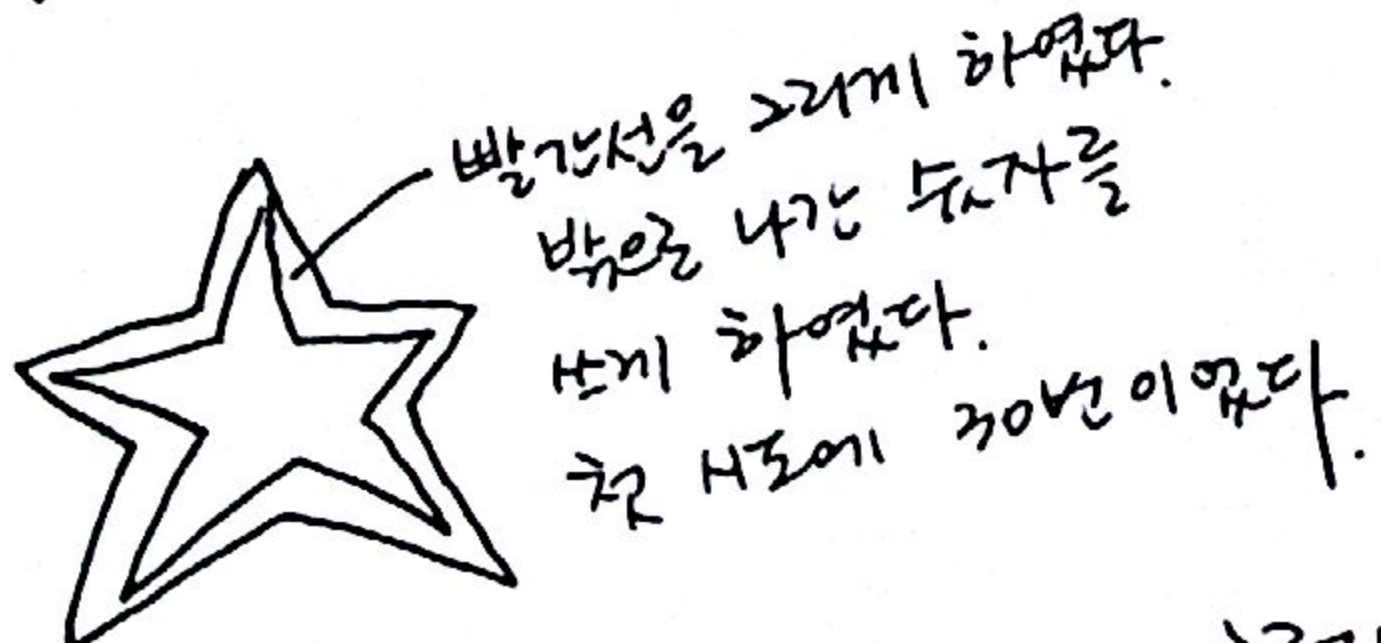 빨간선을 그리게 하였다.
밖으로 나간 숫자를
쓰게 하였다.
첫 시도에 30번이었다.